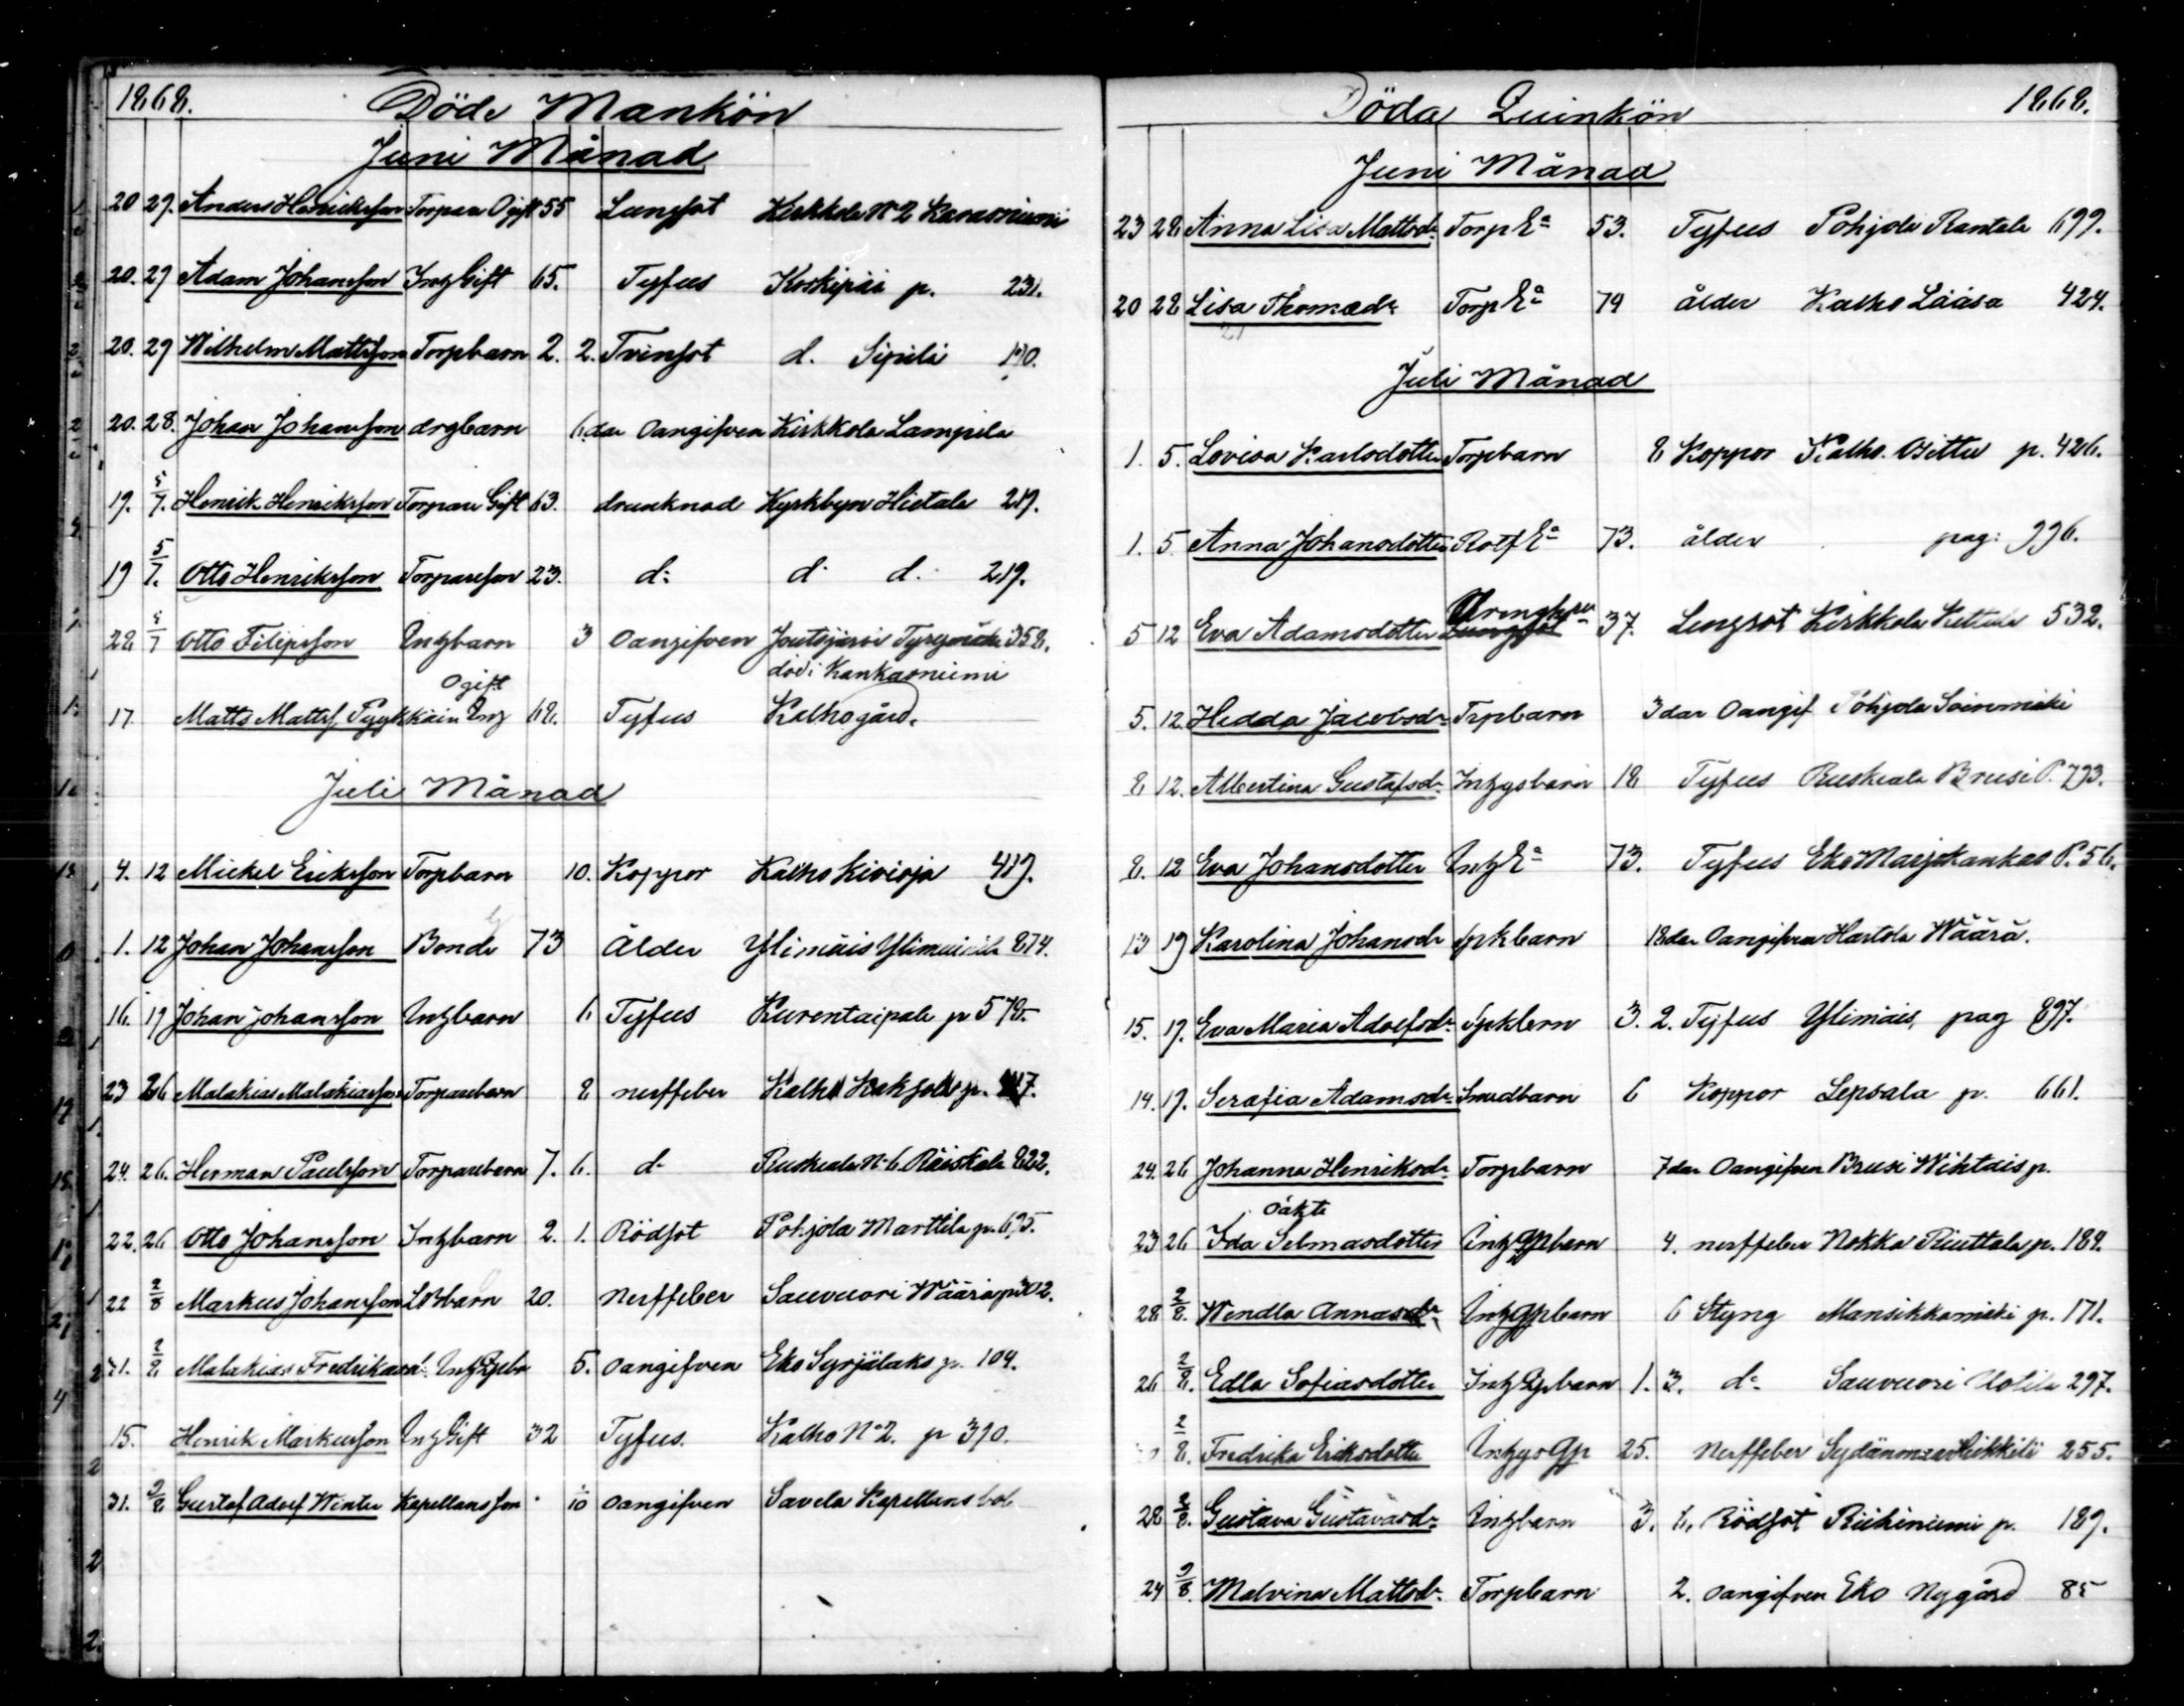 1868. Döda Mankön
Juni Månad
20 29. Anders Henriksson Torpare Ogift 55 Lungsot Kirkkola N 2 Karasniemi
20. 29 Adam Johansson Inhg Gift 65. Tyfus Koskipää p. 231.
20. 29 Wilhelm Mattsson Torpbarn 2. 2. Tvinsot d. Sipilä 190.
20. 28. Johan Johansson drgbarn 6 dar Oangifven Kirkkola Lampila
19. 5/7. Henrik Henriksson Torpare Gift 63. drunknad Kyrkbyn Hietala 219.
19 5/7. Otto Henriksson Torpareson 23. d:o d. d. 219.
28 5/7 Otto Filipsson Inhgbarn 3 Oangifven Joutsjärvi 358.
död i Kankasniemi
17 Matts Matts. Pyykkäin Ogift Inhg 68. Tyfus Kalhogård.
Juli Månad
4. 12 Mickel Ericksson Torpbarn 10. Koppor Kalho Kivioja 419.
1. 12 Johan Johansson Bonde 73 Ålder Ylimäis 874.
16. 19 Johan Johansson Inhgbarn 6 Tyfus Kurentaipale p 578.
23 26 Malakias Malakiasson Torparebarn 8 nerffeber Kalho p.
24. 26. Herman Paulsson Torparebarn 7. 6. d:o Ruskeala N 6 Räiskälä 822.
22. 26 Otto Johansson Inhgbarn 2. 1. Rödsot Pohjola Marttila p. 695.
22 2/8 Markus Johansson barn 20. Nerffeber Sauvuori Wäärä p 302.
21. 2/8 Malakias Fredrikasd. 5. Oangifven Eko Syrjälaks p. 104.
15. Henrik Markusson Inhg Gift 32 Tyfus. Kalho N:o 2. p 390.
31. 9/8. Gustaf Adolf Winter Kapellansson 10 Oangifven Savela Kapellansbol
Döda Quinkön 1868.
Juni Månad
23 28 Anna Lisa Mattsdr. Torp E:a 53. Tyfus Pohjola Rantala 699.
20 28 Lisa Thomasdr. Torp E:a 79 ålder Kalho Lääsa 424.
Juli Månad
1. 5. Lovisa Karlsdotter Torpbarn 8 Koppor Kalho. p. 426.
1. 5 Anna Johansdotter Rotf E:a 73. ålder pag: 996.
5 12 Eva Adamsdotter 37. Lungsot Kirkkola Kettula 532.
5. 12. Hedda Jacobsdr. Trpbarn 3 dar Oangif Pohjola Soinimäki
8 12. Albertina Gustafsdr. Inhysbarn 18 Tyfus Ruskeala Brusi P. 793.
8. 12 Eva Johansdotter Inhg E:a 73. Tyfus Eko Marjokankas P. 56.
13 19 Karolina Johansdr Spkbarn 18 dar Oangifven Hartola Wäärä.
15. 19. Eva Maria Adolfsdr. Spkbrn 3. 2. Tyfus Ylimäis, pag 897.
14. 19. Serafia Adamsdr. Smedbarn 6 Koppor Lepsala p. 661.
24. 26 Johanna Henriksdr. Torpbarn 7 dar Oangifven Brusi Wihtais p.
Oäkta
23 26 Ida Selmasdotter Inhg Qpbarn 4. nerffeber Nokka Riuttala p. 184.
28 2/8. Wendla Annasdr. Inhg Qpbarn 6 Styng Mansikkamäki p. 171.
26 2/8. Edla Sofiasdotter Inhg Qpbarn 1. 3. d:o Sauvuori Uotila 297.
2/8. Fredrika Eriksdotter Inhys Qp 25. Nerffeber Sydänmaa 255.
28 2/8. Gustava Gustavasdr. Inhgbarn 3. 6. Rödsot Riihiniemi p. 189.
24 9/8. Malvina Mattsdr. Torpbarn 2. Oangifven Eko Nygård 85